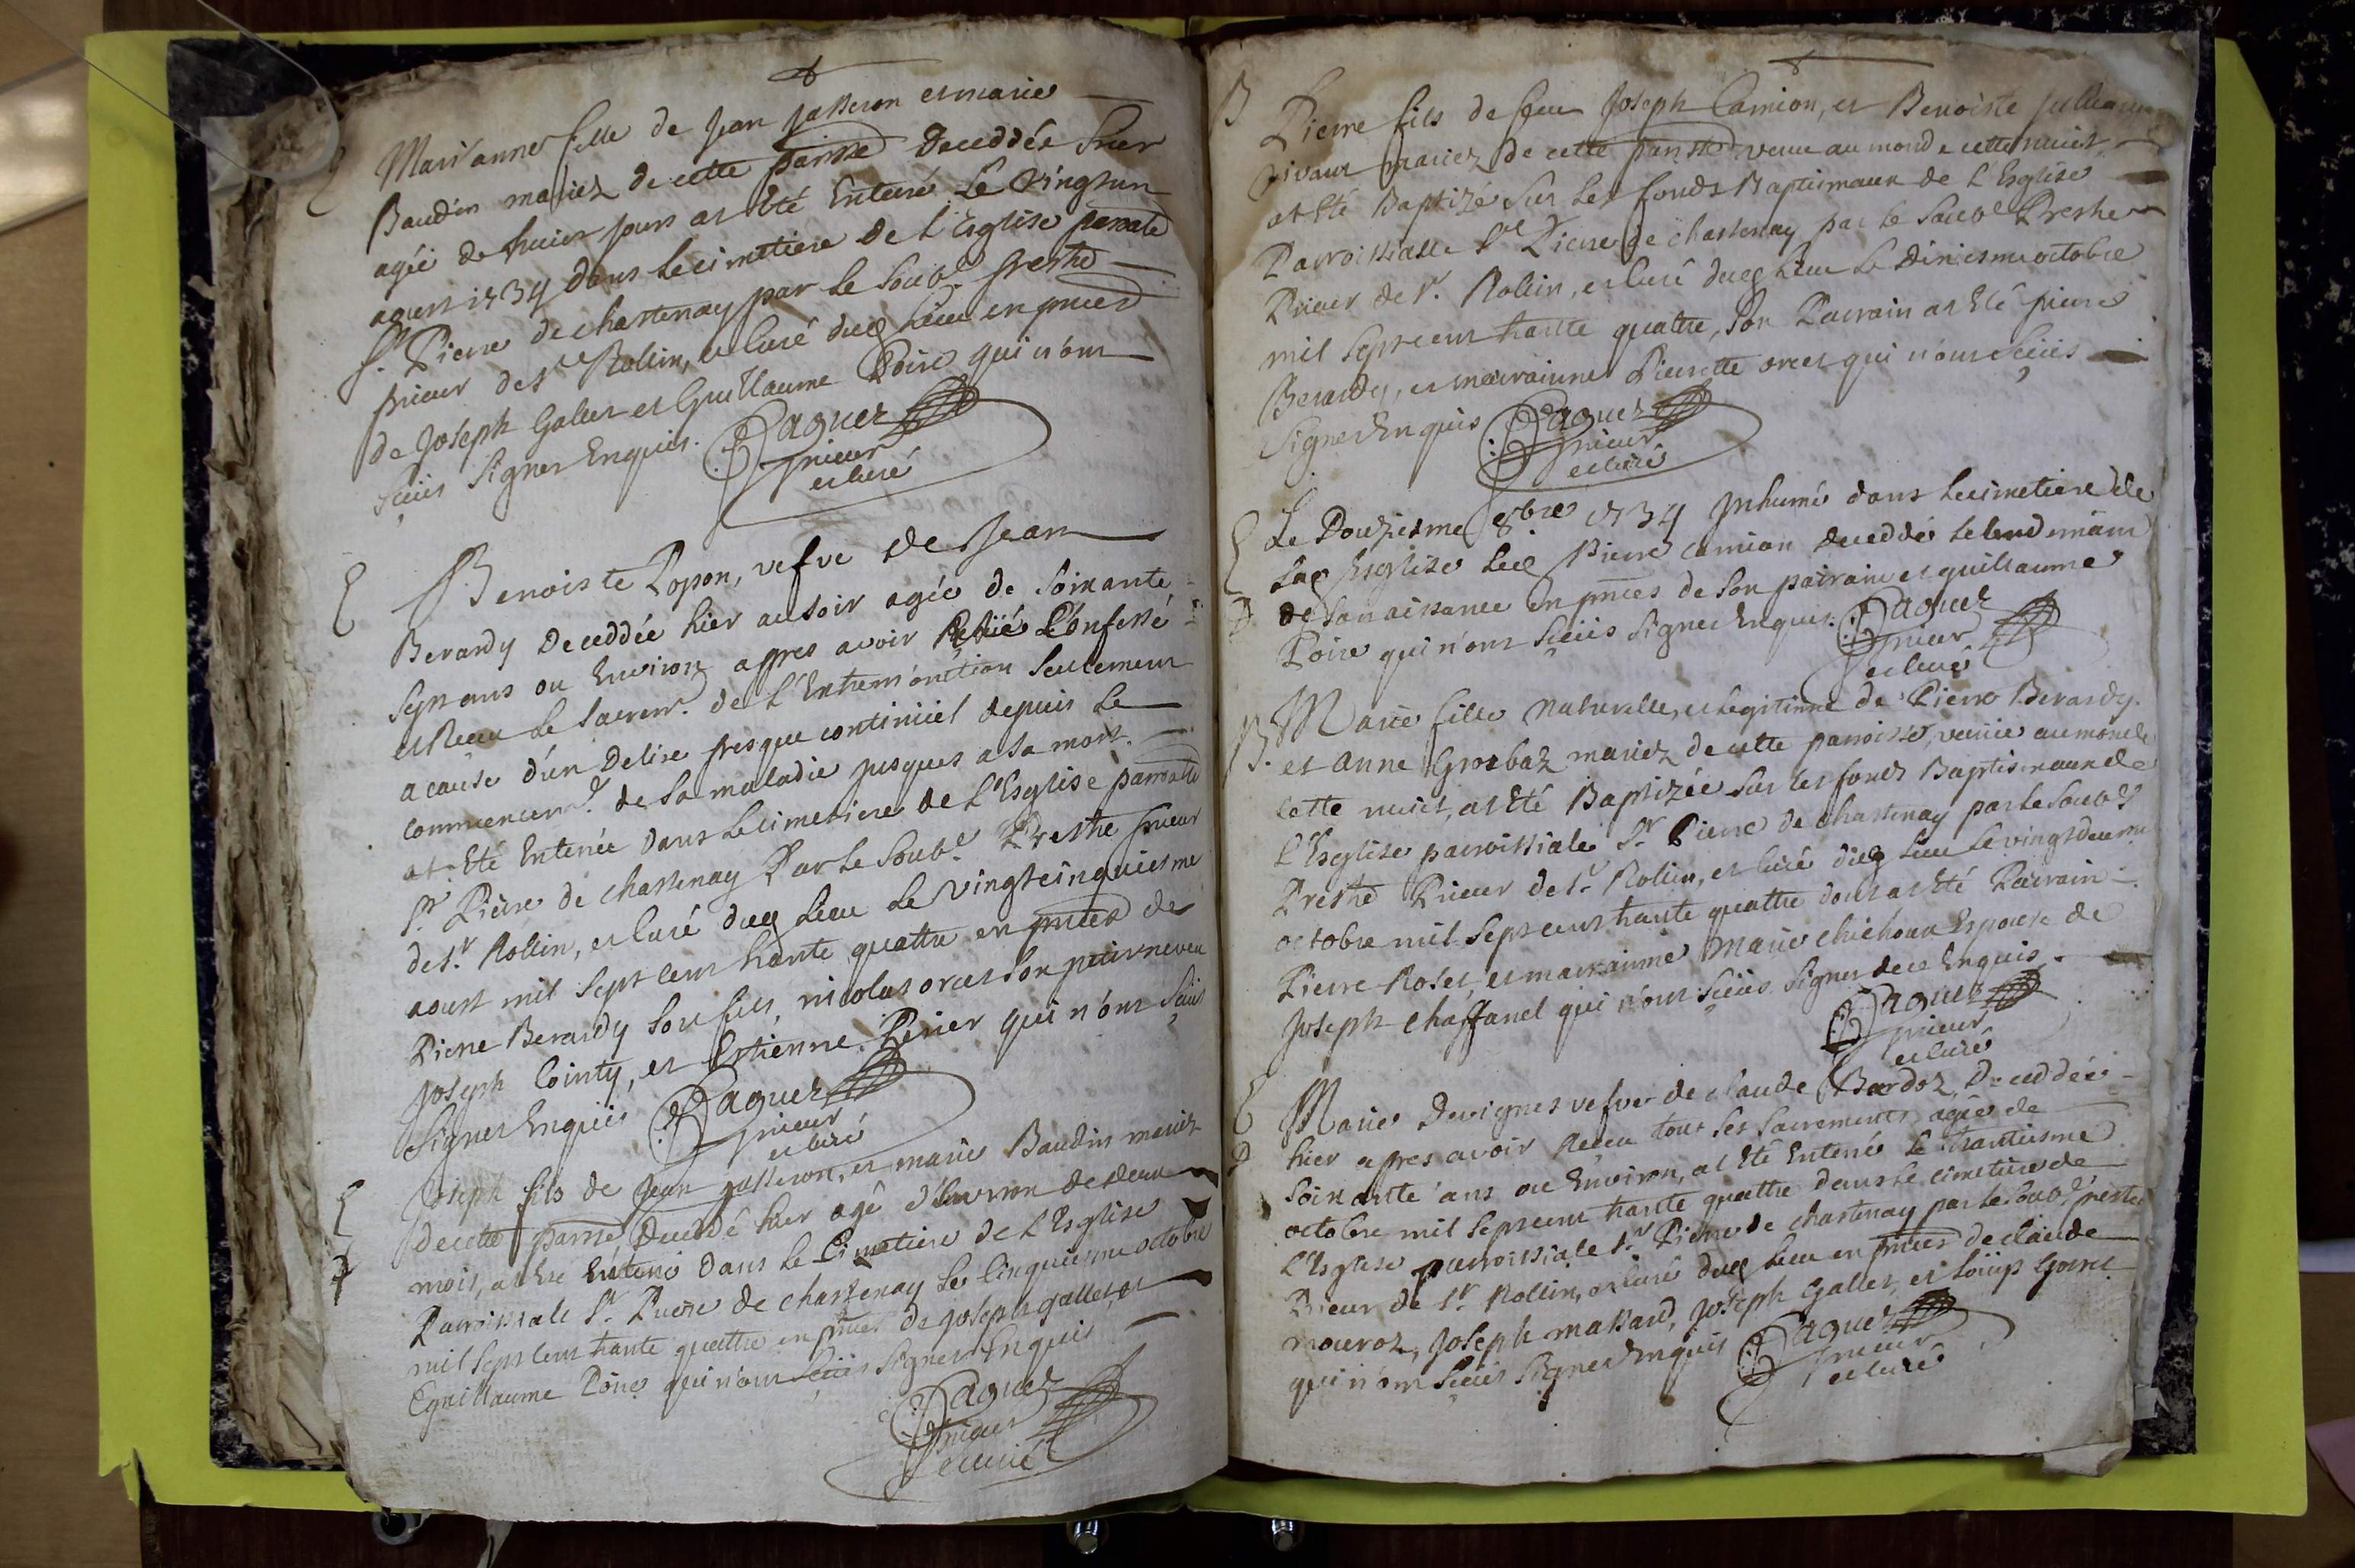 E
Mari'anne fille de Jean Jasseron et marie
Baudin mariez de cette parrsse Deceddée hier
agée de huict jours at Eté Enterré Le Vingtun
aoust 1734 dans Lecimetiere de L'Esglise parroale
St. Pierre de chastenay par Le Soubné. prestre
prieur de St Rollin, et Curé dueq Lieu en pnces
de Joseph Gallet et Guillaume Poire qui n'ont
sçeüs Signer Enquis. Paquez
prieur
et curé
E
Benoiste Popon, vefve de Jean
Berardy Deceddée hier au soir agée de Soixante
Sept ans ou Environ appres avoir Confessé
et Receu Le Sacrem.t de L'Extremonction Seulement
a cause d'un Delire presque continüel depuis Le
commencem.t de Sa maladie jusques a Sa mort.
at Eté Enterrée dans Lecimetiere de L'Esglise parroalle
St. Pierre de chastenay Par Le Soub.né Prestre prieur
de St. Rollin, et Curé dueq Lieu Le Vingtcinquiesme
aoust mil Sept Cent trante quattre en pnces de
Pierre Berardy Son fils, nicolas orcet Son petit neveu
Joseph Cointy, et Estienne Perier qui n'ont Sçeüs
Signer Enquis Paquez
prieur
et curé
E
Joseph fils de Jean Jasseron, et marie Baudin mariez
de cette parrsse, Deceddé hier agé d'Environ de deux
mois, at Eté Enterré Dans Le Cimetiere de L'Esglise
Parroissiale St. Pierre de chastenay Le Cinquiesme octobre
mil Sept Cent trante quattre en pnces de Joseph gallet, et
Eguillaume Poire qui n'ont Sçeüs Signer Enquis
Paquez
prieur
et curé
B
Pierre fils de feu Joseph Camion, et Benoiste Julliann
vivant mariez de cette parrsse venu au monde cette nuict
at Eté Baptizé Sur Les fonds Baptismaux de L'Esglise
Parroissialle St Pierre de chastenay par Le Soubné Prestre
Prieur de St. Rollin, et Curé dueq Lieu Le Dixiesme octobre
mil Sept cent trante quattre, Son Parrain at Eté pierre
Berardy, et marrainne Pierrette orcet qui n'ont Sçeüs
Signer Enquis Paquez
prieur
et curé
E
Le Douziesme 8bre 1734 Inhumé dans Lecimetiere de
Laq Esglise Leq Pierre Camion deceddé Le lendemain
D
de Sa naissance En pnces de Son parrain et guillaume
Poire qui n'ont Sçeüs Signer Enquis. Paquez
prieur
et curé
B.
Marie fille Naturelle, et Legitimme de Pierre Berardy.
et Anne Grosbaz mariez de cette parroisse, venüe au monde
cette nuict, at Eté Baptizée Sur Les fonds Baptismaux de
L'Esglise parroissiale St. Pierre de chastenay par Le Soubné
Prestre Prieur de St. Rollin, et Curé dueq Lieu Le vingtdeuxme
octobre mil Sept cent trante quattre dont at Eté Parrain
Pierre Roset, et marrainne Marie chichoux Espouse de
Joseph Chaffanel qui n'ont Sçeüs Signer de ce Enquis.
Paquez
prieur
et curé
E
Marie Devignes vefve de claude Bardoz, Deceddée
D
hier apres avoir Receu tout Ses Sacrements agée de
Soixante ans ou Environ, at Eté Enterré Le trantiesme
octobre mil Sept cent trante quattre dans Le cimetiere de
L'Esglise parroissiale St. Pierre de chastenay par Le Soub.né prestre
Prieur de St. Rollin, et Curé dueq Lieu en pnces de claude
mouroz, Joseph massard, Joseph Gallet, et
qui n'ont Sçeüs Signer Enquis Paquez
prieur
et curé